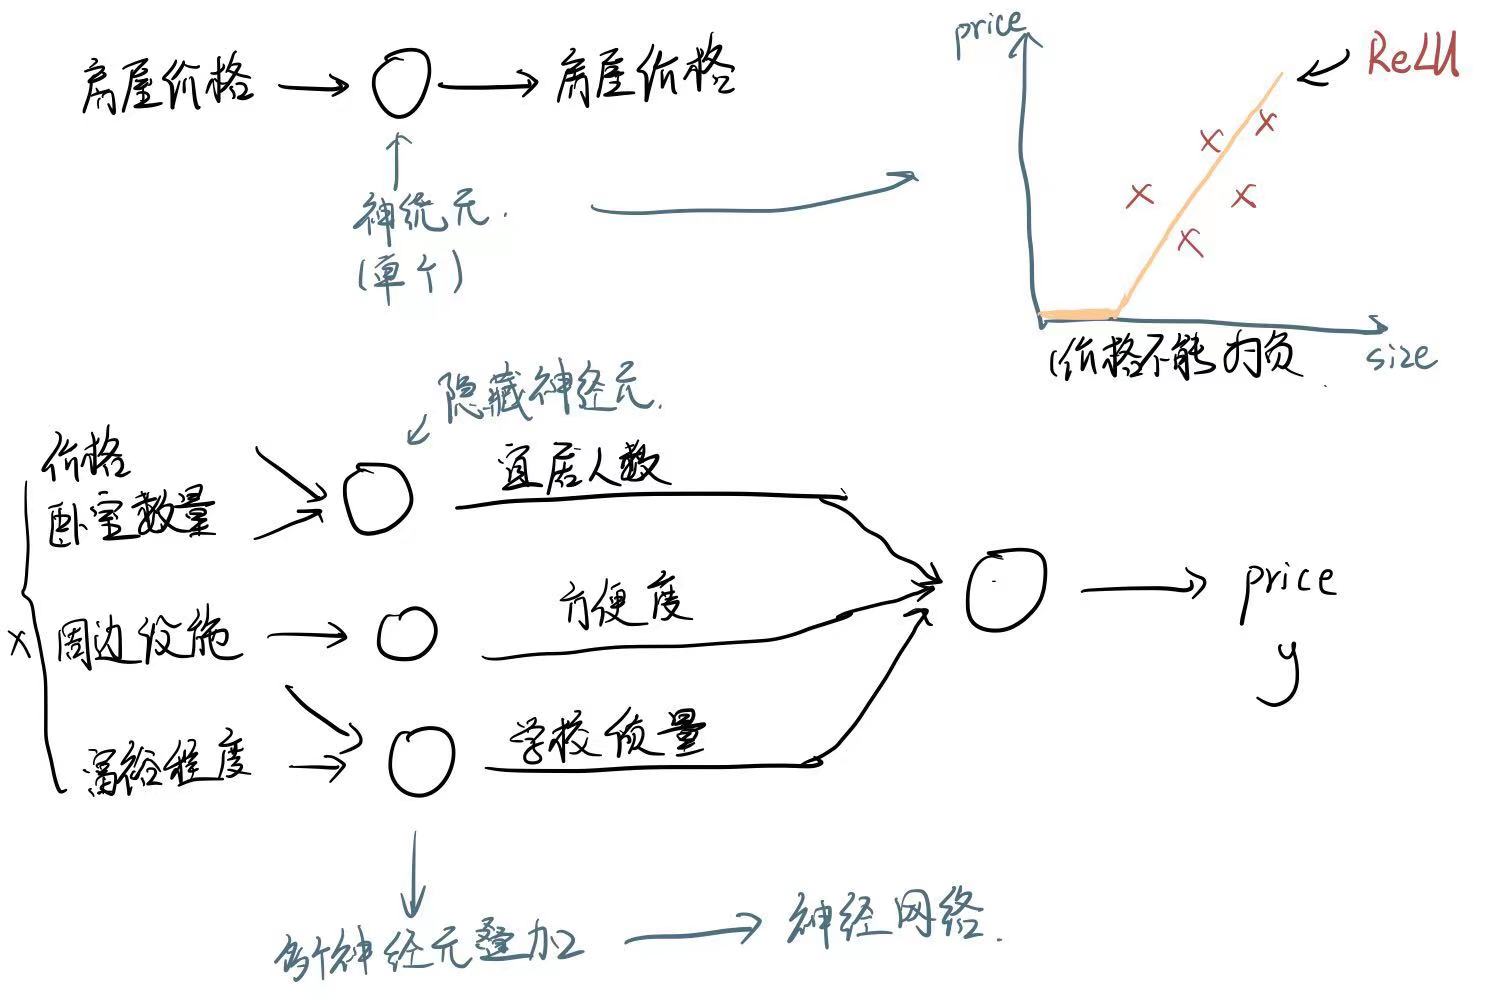 房屋价格
房屋价格
神经元.
(单个)
price
ReLU
(价格不能为负
size
隐藏神经元.
价格
卧室数量
周边设施
富裕程度
x
宜居人数
方便度
学校质量
price
y
多个神经元叠加
神经网络.